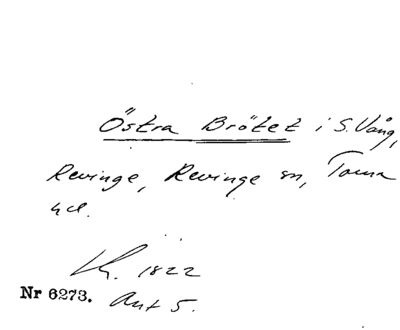 Östra Brötet i S. Vång,
Revinge, Revinge sn, Torna
hd.
Lh. 1822
Nr 6273. Akt 5.